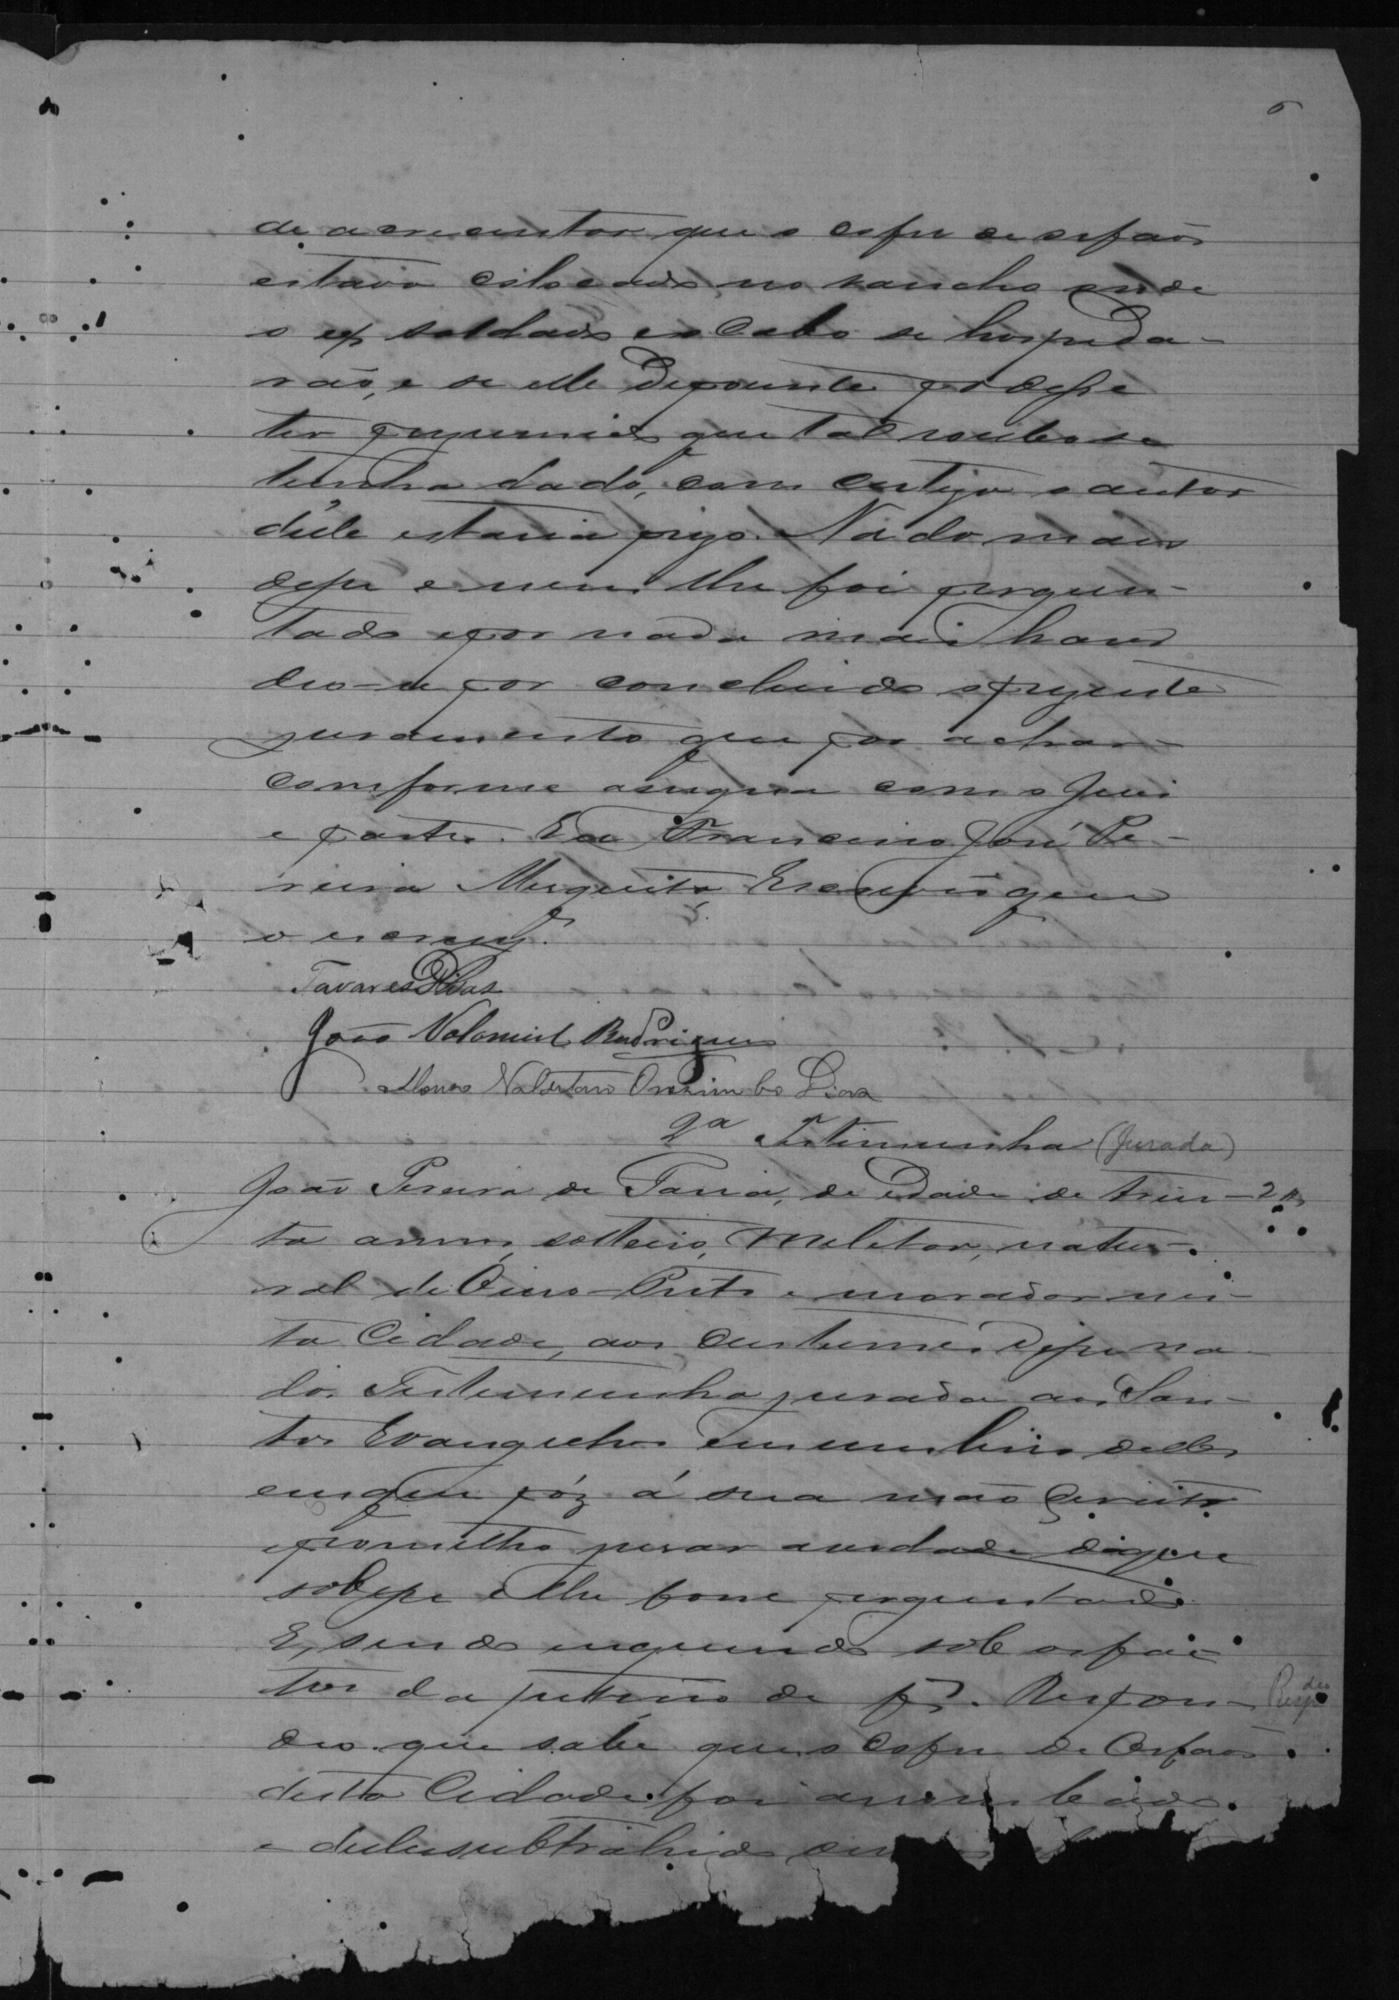 6
de acrecentar que o cofre de orfaõs
estava collocado no rancho onde
o ex soldado e o Cabo se hospeda-
rão, e se elle Depoente podesse
ter que tal roubo se
tinha dado, com certesa o autor
d'elle estaria prezo. Nada mais
disse e nem lhe foi pergun-
tado e por nada mais haver
deo-se por concluido o prezente
juramento que por achar
conforme assigna com o Juiz
e partes. Eu Francisco José Pe-
reira Mesquita, Escrivão que
o escrevy.
Tavares Dias
João Rodrigues
Onozimbo Lima
2ª Testimunha (Jurada)
João Pereira de Faria, de edade de trin- 2ª
ta annos, solteiro, Militar, natu-
ral de Ouro-Preto e morador nes-
ta Cidade, aos custumes disse na-
da. Testemunha jurada aos San-
tos Evangelhos em um livro delles
em que pôz á sua mão direita
e prometteo jurar a verdade do que
soubesse e lhe fosse perguntado
E, sendo inquerido sobre os fac-
tos da petição de f2. Respon-
deo que sabe que o Cofre de Orfaos
desta Cidade foi arrombado
e delle subtrahido